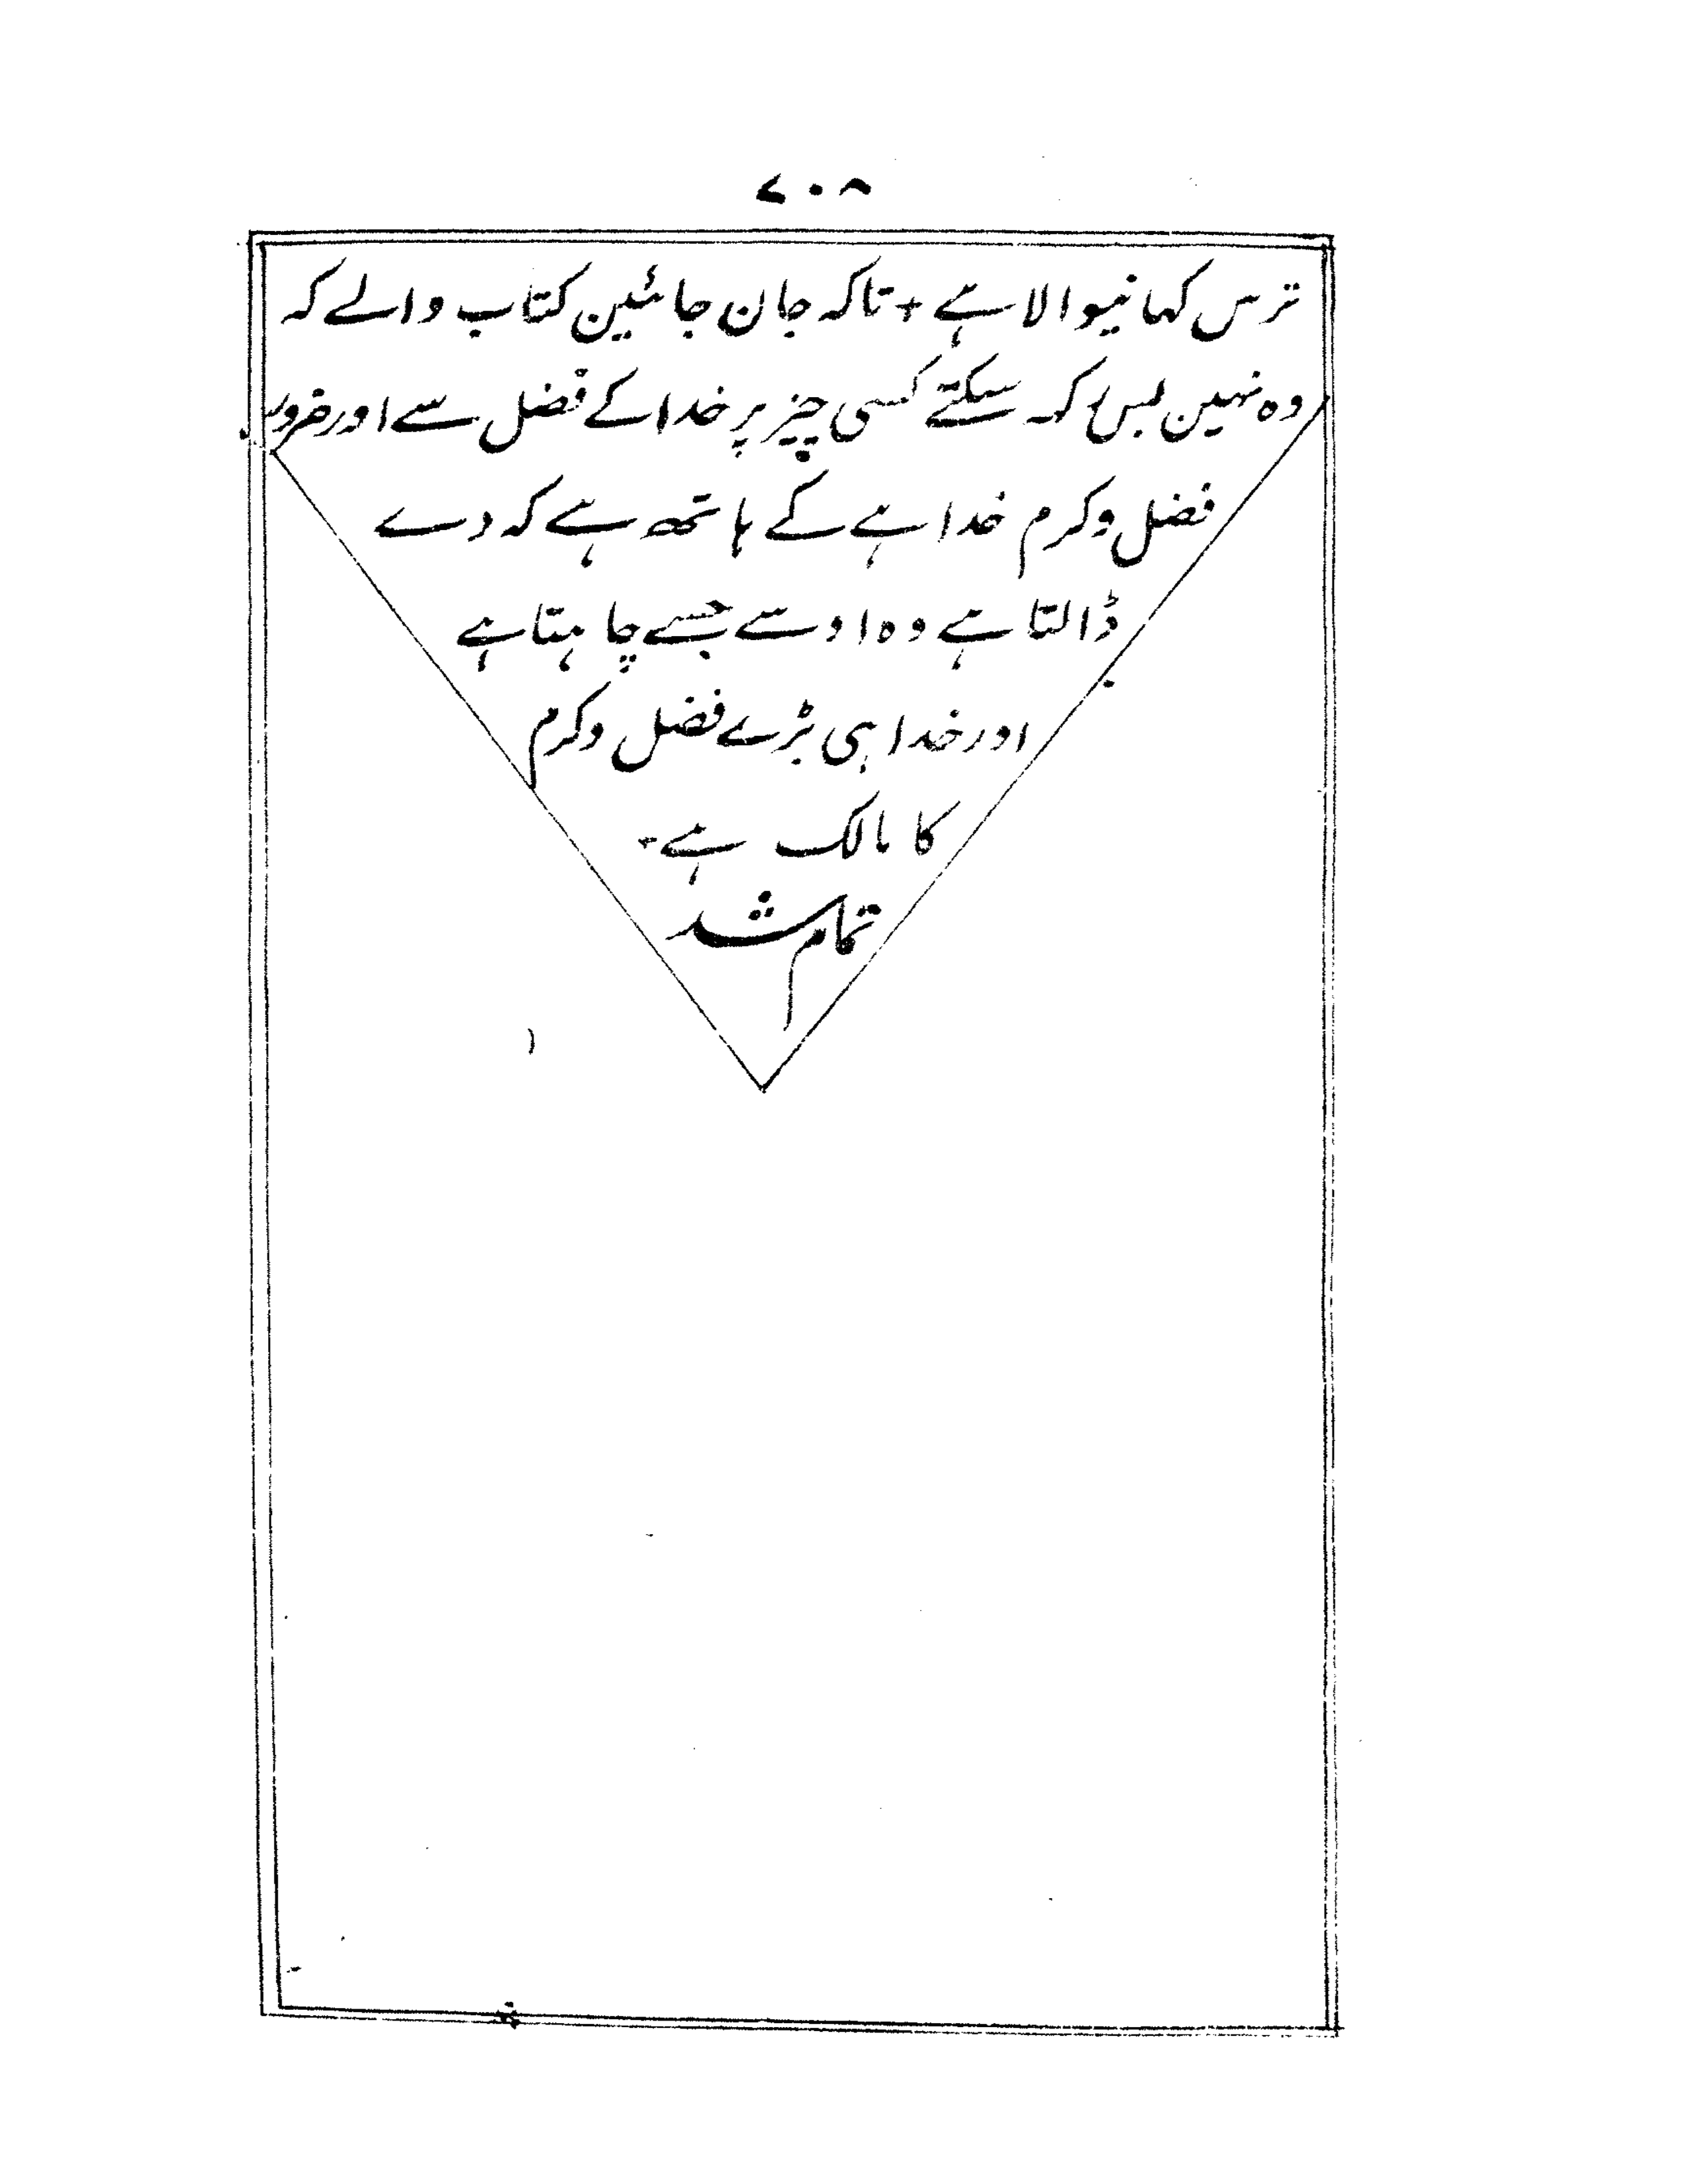 ۷۰۸
ترس کہانیوالا ہے + تاکہ جان جائین کتاب والے کہ
وہ نہین بس کر سکتے کسی چیز پر خدا کے فضل سے اور ضرور
فضل و کرم خدا ہے کے ہاتھ ہے کہ دے
ڈالتا ہے وہ اوسے جسے چاہتا ہے
اور خدا ہی بڑے فضل و کرم
کا مالک ہے۔
تمام شد